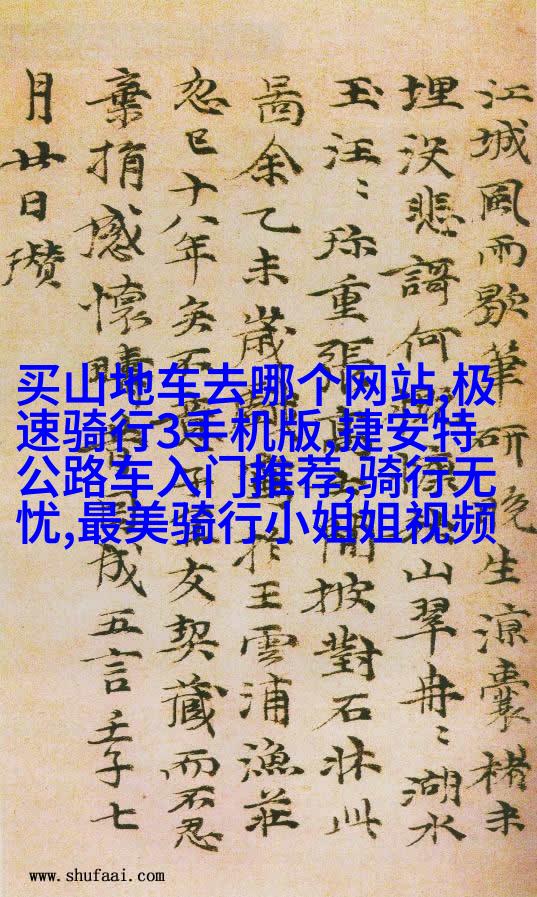 江城風雨歇筆研晚生凉囊楮未
埋没悲謌何山翠冉〻湖水
玉汪〻珎重張閒披對石牀此
啚余乙未歲於王雲浦漁莊
忽已十八年矣不友契藏而不忍
棄捐感懷成五言壬子七
月廿日瓚
买山地车去哪个网站,极
速骑行3手机版,捷安特
公路车入门推荐,骑行无
忧,最美骑行小姐姐视频
www.shufaai.com